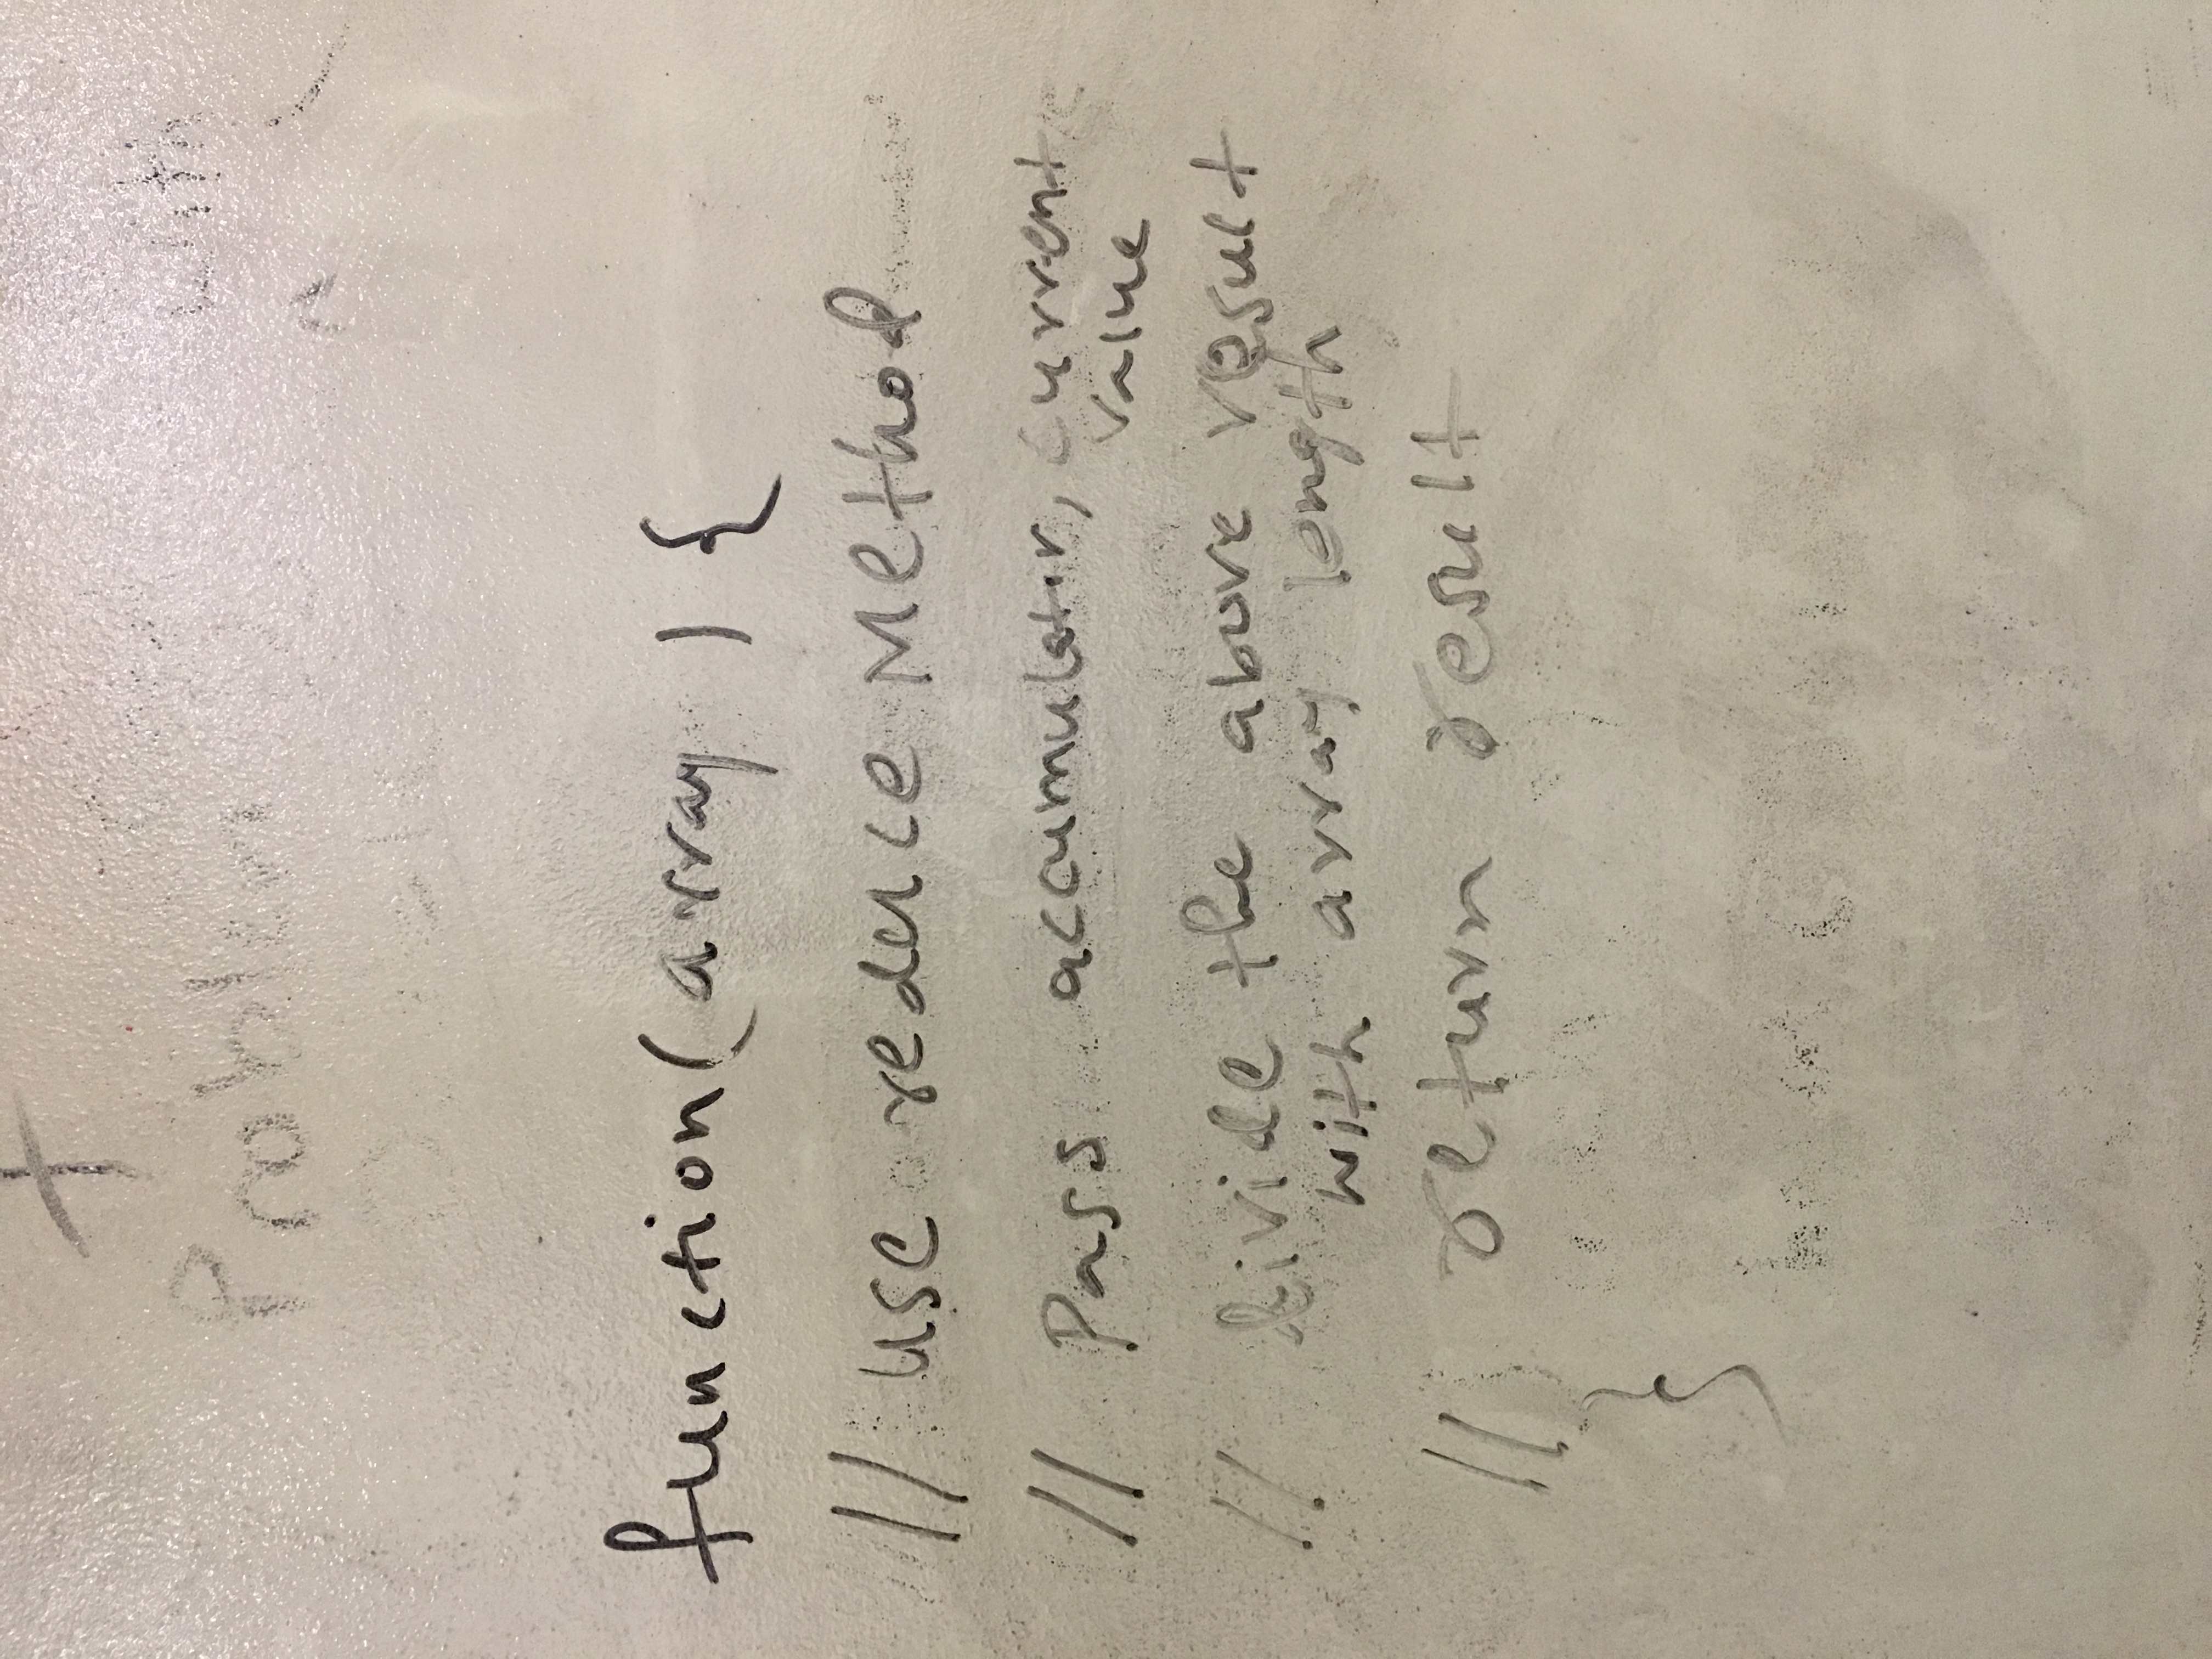 Problem
with
function(array ) {
// use reduce Method
// Pass accumulator, current
value
// divide the above result
with array length
// return result
}